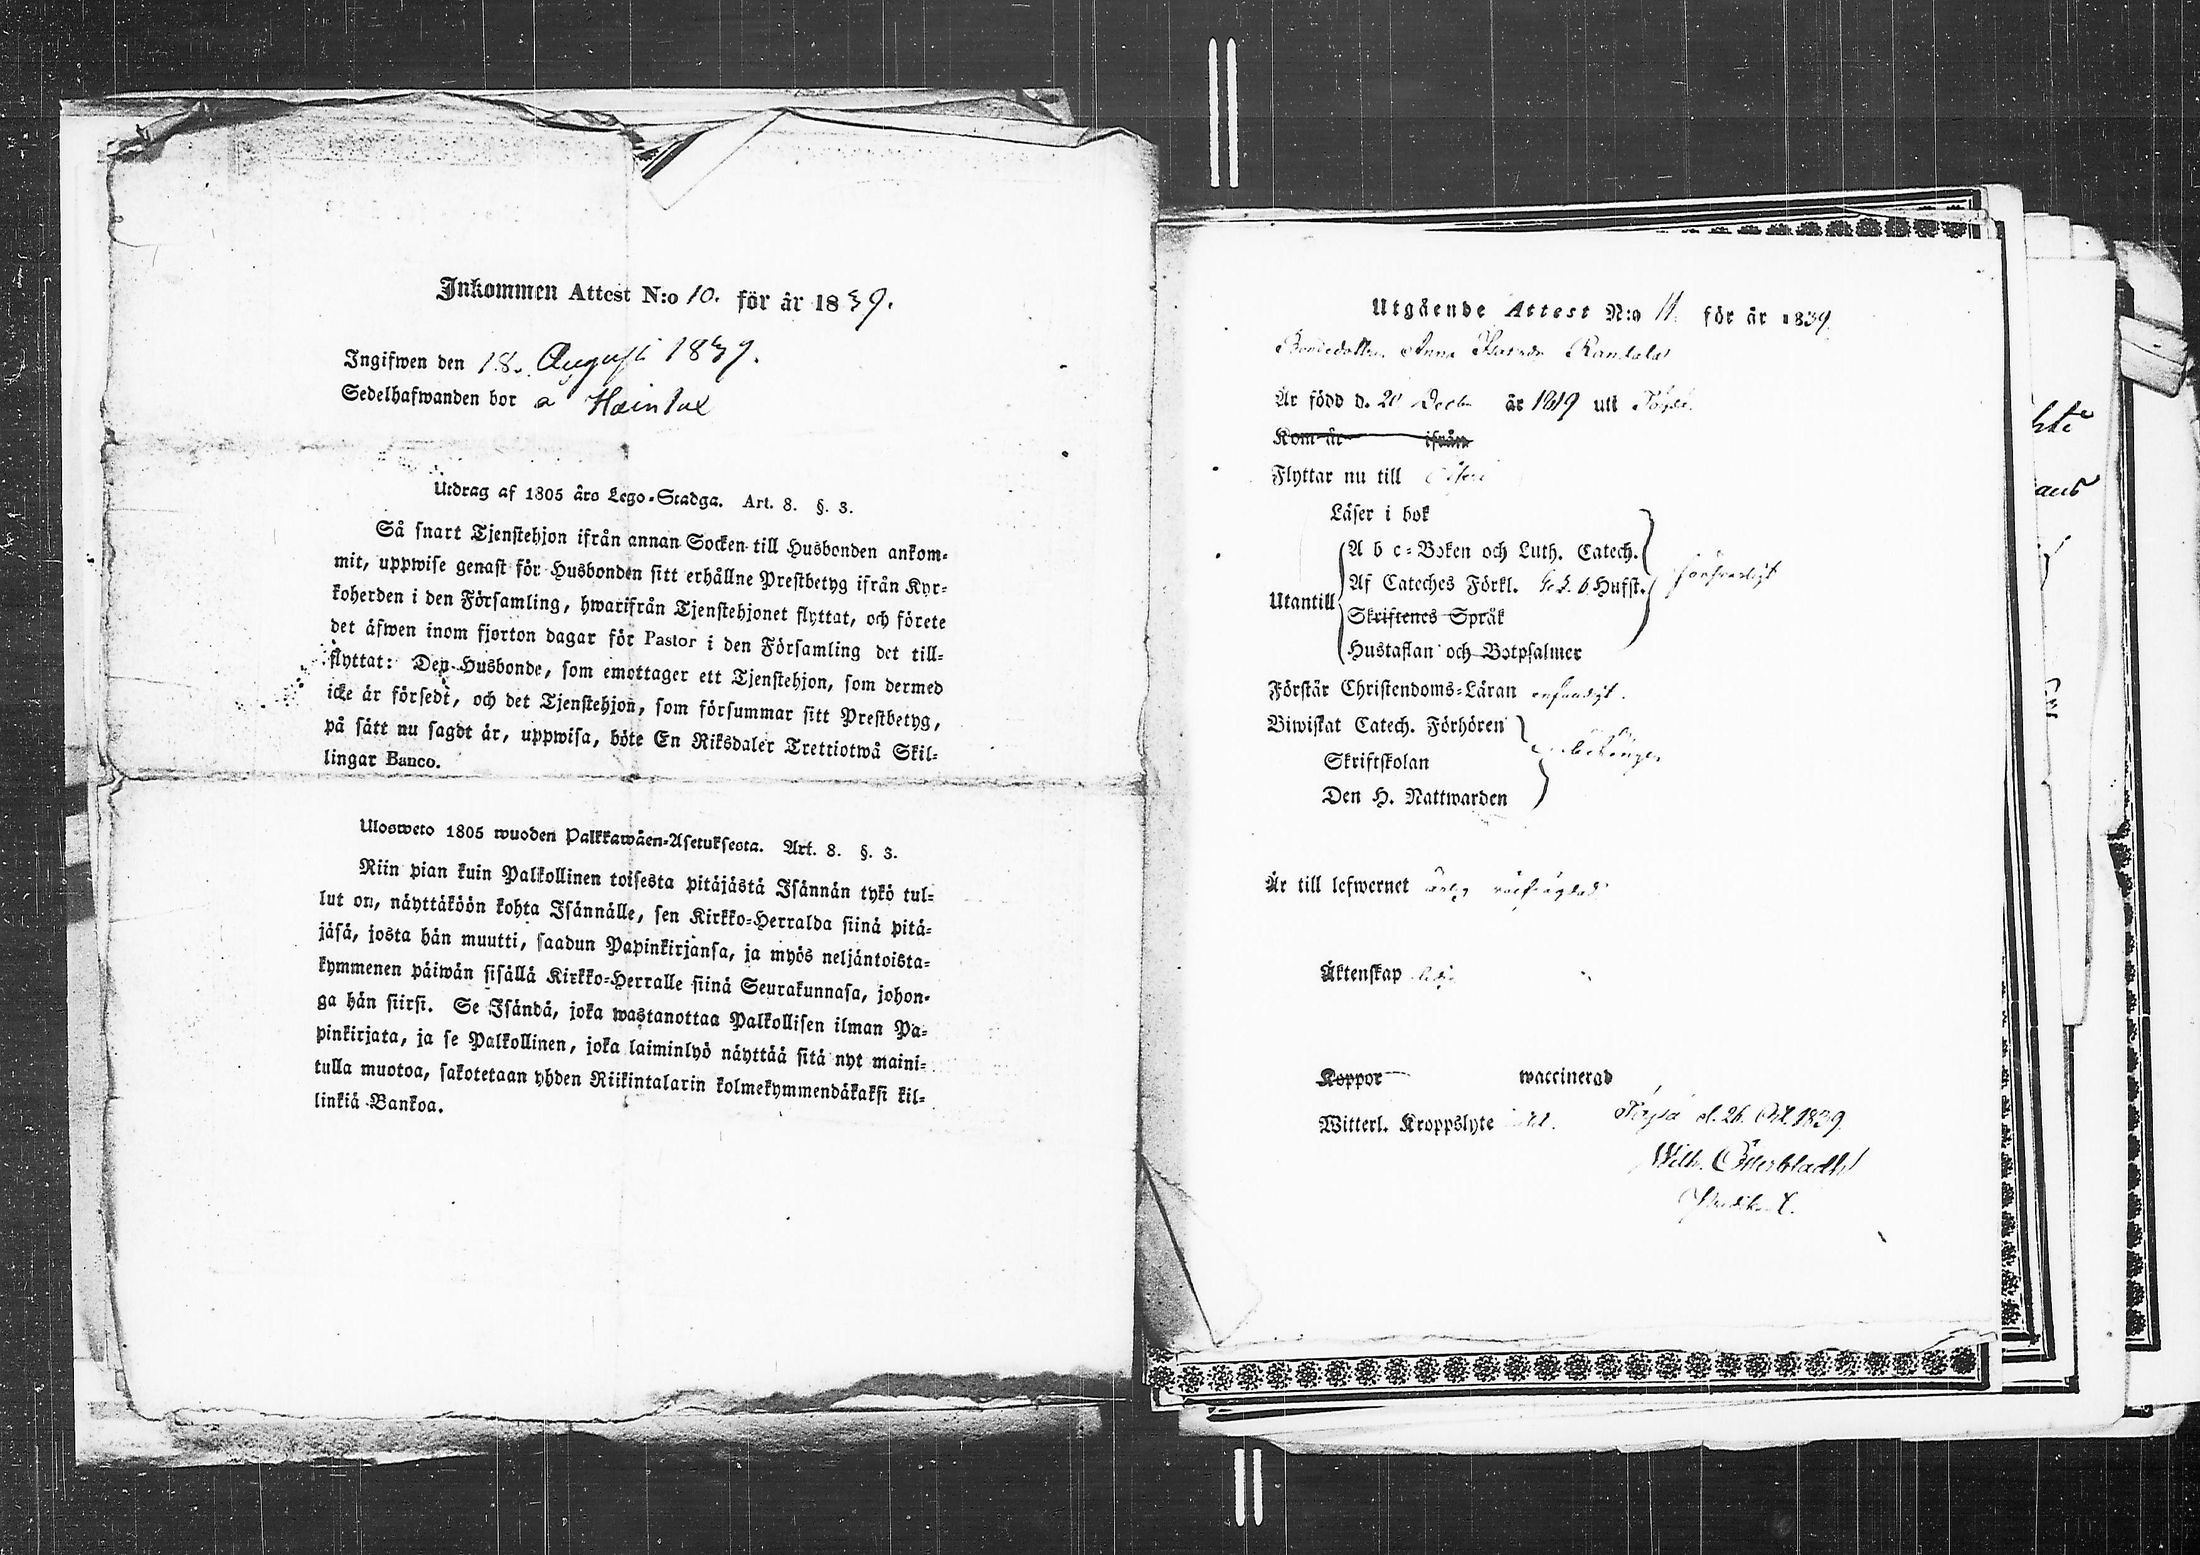 Inkommen Attest N:o 10. för år 1839.
Ingifwen den 18. Augusti 1839.
Sedelhafwanden bor a
Utdrag af 1805 års Lego-Stadga. Art. 8. §. 3.
Så snart Tjenstehjon ifrån annan Socken till Husbonden ankom-
mit, uppwise genast för Husbonden sitt erhållne Prestbetyg ifrån Kyr-
koherden i den Församling, hwarifrån Tjenstehjonet flyttat, och förete
det äfwen inom fjorton dagar för Pastor i den Församling det till-
flyttat: Den Husbonde, som emottager ett Tjenstehjon, som dermed
icke är försedt, och det Tjenstehjon, som försummar sitt Prestbetyg,
på sätt nu sagdt är, uppwisa, böte En Riksdaler Trettiotwå Skil-
lingar Banco.
Ulosweto 1805 wuoden Palkkawäen-Asetuksesta. Art. 8. §. 3.
Niin pian kuin Palkollinen toisesta pitäjästä Isännän tykö tul-
lut on, näyttäköön kohta Isännälle, sen Kirkko-Herralda siinä pitä-
jäsä, josta hän muutti, saadun Papinkirjansa, ja myös neljäntoista-
kymmenen päiwän sisällä Kirkko-Herralle siinä Seurakunnasa, johon-
ga hän siirsi. Se Isändä, joka wastanottaa Palkollisen ilman Pa-
pinkirjata, ja se Palkollinen, joka laiminlyö näyttää sitä nyt maini-
tulla muotoa, sakotetaan yhden Riikintalarin kolmekymmendäkaksi kil-
linkiä Bankoa.
Utgående Attest N:o 11. för år 1839.
Anna
Är född d. 20 Decbr år 1819 uti Töysä
Kom år ifrån
Flyttar nu till
Läser i bok
A b c-Boken och Luth. Catech.
Af Cateches Förkl. Hufst.
Utantill
Skriftenes Språk
Hustaflan och Botpsalmer
försvarligt
Förstår Christendoms-Läran
Biwistat Catech. Förhören
Skriftskolan
Den H. Nattwarden
Är till lefwernet ärlig välfrägdad
Äktenskap ledig
Koppor waccinerad
Witterl. Kroppslyte
Töysä d. 26. Oct. 1839
Wilh. Österbladh
Predikant.